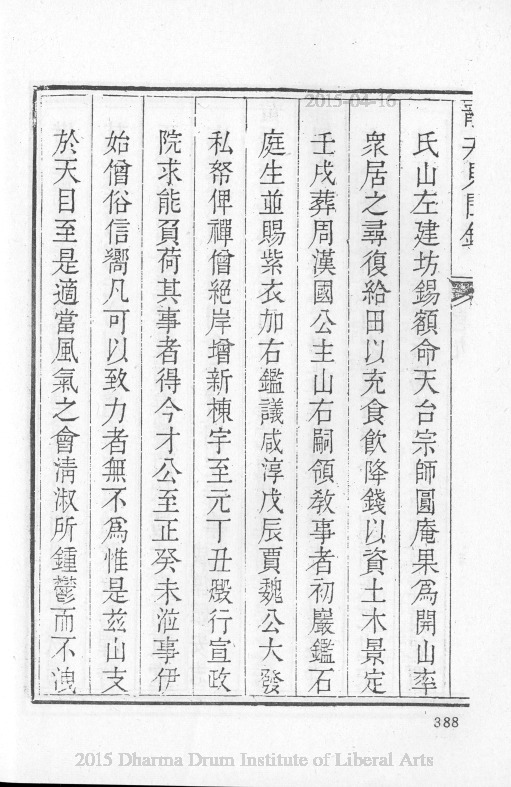 2015-04-16
氏山左建坊錫額命天台宗師圓庵果為開山率
衆居之尋復給田以充食飲降錢以資土木景定
壬戌葬周漢國公主山右嗣領敎事者初巖鑑石
庭生並賜紫衣加右鑑議咸淳戊辰賈魏公大發
私帑俾禪僧絕岸增新棟宇至元丁丑燬行宣政
院求能負荷其事者得今才公至正癸未涖事伊
始僧俗信嚮凡可以致力者無不爲惟是茲山支
於天目至是適當風氣之會淸淑所鍾鬱而不洩
388
2015 Dharma Drum Institute of Liberal Arts